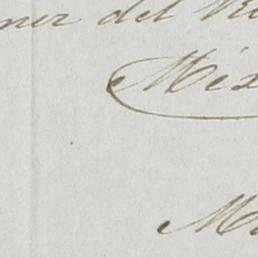 ner del R
Méx
Ma